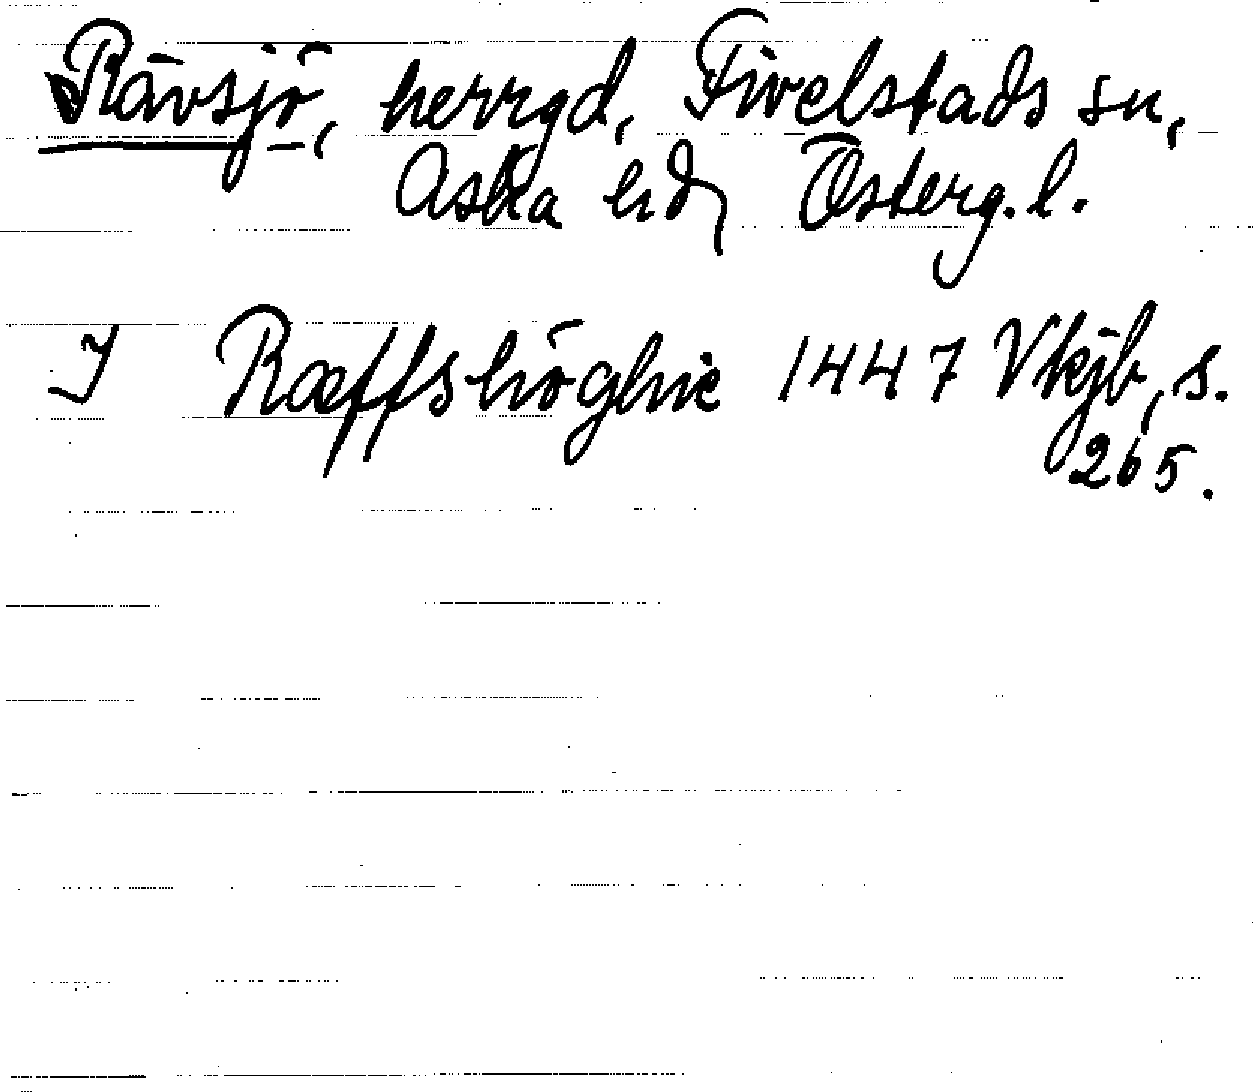 Rävsjö, herrgd, Fivelstads sn,
Aska hd, Österg.l.
I Ræffshöghie 1447 Vkjb, s.
265.